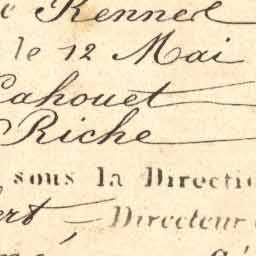 e Kenned
le 12 Mai
Cahouet
Riche
sous la Directi
bert, Directeur